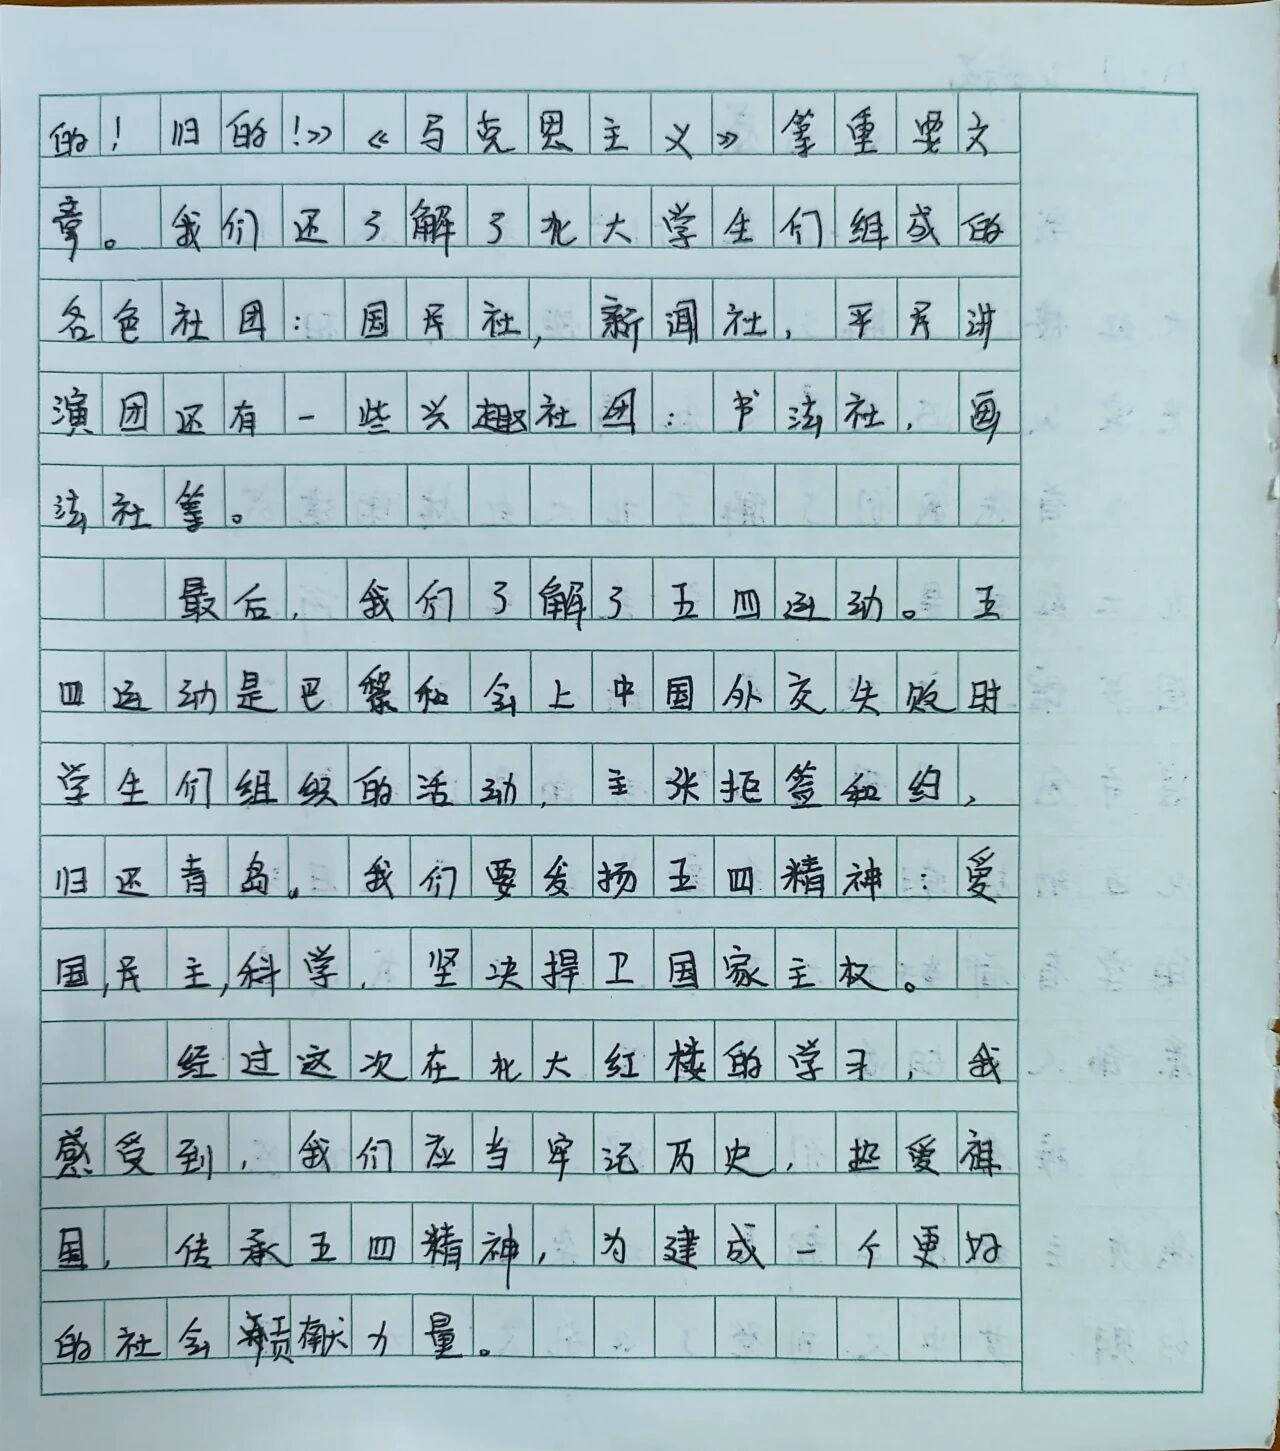 的！旧的！》《马克思主义》等重要文
章。我们还了解了北大学生们组成的
各色社团：国民社，新闻社，平民讲
演团还有一些兴趣社团：书法社，画
法社等。
最后，我们了解了五四运动。五
四运动是巴黎和会上中国外交失败时
学生们组织的活动，主张拒签和约，
归还青岛。我们要发扬五四精神：爱
国，民主，科学，坚决捍卫国家主权。
经过这次在北大红楼的学习，我
感受到，我们应当牢记历史，热爱祖
国，传承五四精神，为建成一个更好
的社会贡献力量。